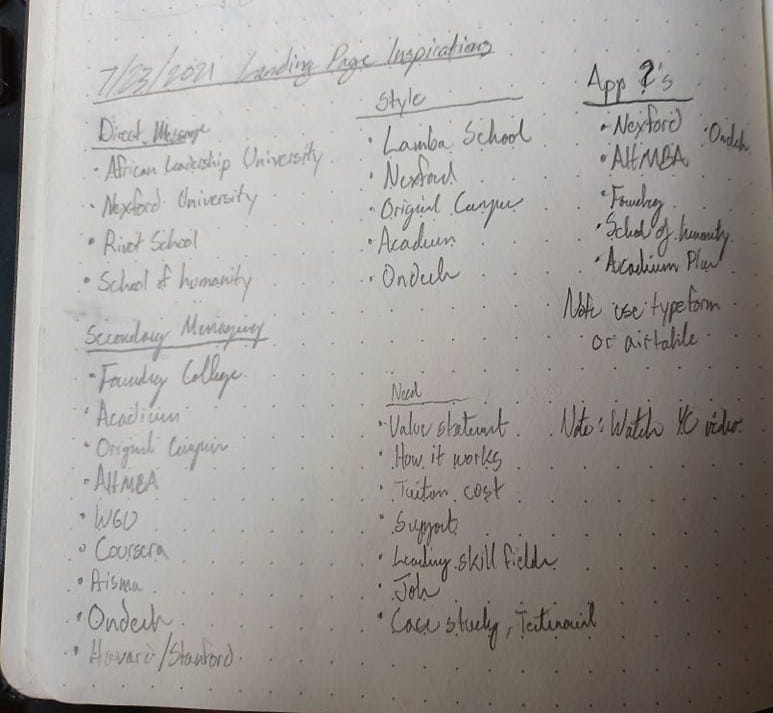 7/23/2021 Landing Page Inspirations
Direct Message
• African Leadership University
• Nexford University
• Rivet School
• School of humanity
Secondary Messaging
• Foundry College
• Acadium
• Original Campus
• AltMBA
• WGU
• Coursera
• Prisma
• Ondeck
• Havard/Stanford
Style
• Lamba School
• Nexford
• Original Campus
• Acadium
• Ondeck
Need
• Value statment
• How it works
• Tuition cost
• Support
• Leading skill fields
• Job
• Case study, Testimonial
App ?'s
• Nexford
• Ondeck
• AltMBA
• Foundry
• School of humanity
• Acadium Plus
Note use typeform
or airtable
Note: Watch YC video